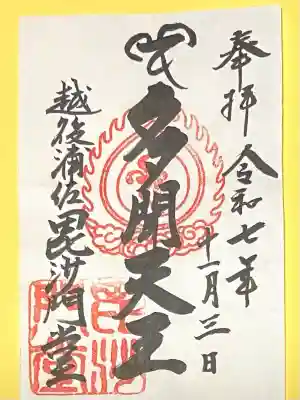 奉拝 令和七年
十一月三日
多聞天王
越後浦佐毘沙門堂